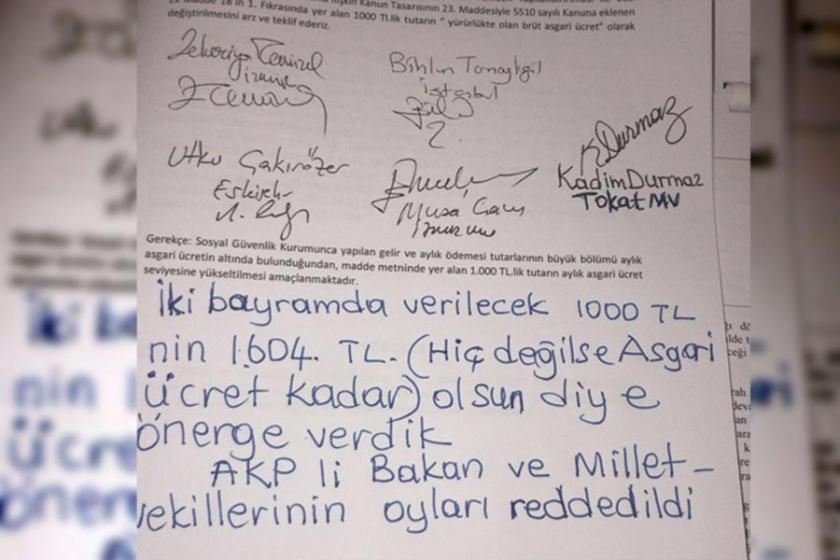 Ek Madde 18'in 1. Fıkrasında yer alan 1000 TL.lik tutarın " yürürlükte olan brüt asgari ücret" olarak
değiştirilmesini arz ve teklif ederiz.
Zekeriya Temizel
İzmir
Bihlun Tamaylıgil
İstanbul
Utku Çakırözer
Eskişehir
Musa Çam
İzmir
K Durmaz
Kadim Durmaz
Tokat MV
Gerekçe: Sosyal Güvenlik Kurumunca yapılan gelir ve aylık ödemesi tutarlarının büyük bölümü aylık
asgari ücretin altında bulunduğundan, madde metninde yer alan 1.000 TL.lik tutarın aylık asgari ücret
seviyesine yükseltilmesi amaçlanmaktadır.
İki bayramda verilecek 1000 TL
nin 1.604. TL. (Hiç değilse Asgari
ücret kadar) olsun diye
önerge verdik
AKP li Bakan ve Millet-
vekillerinin oyları reddedildi